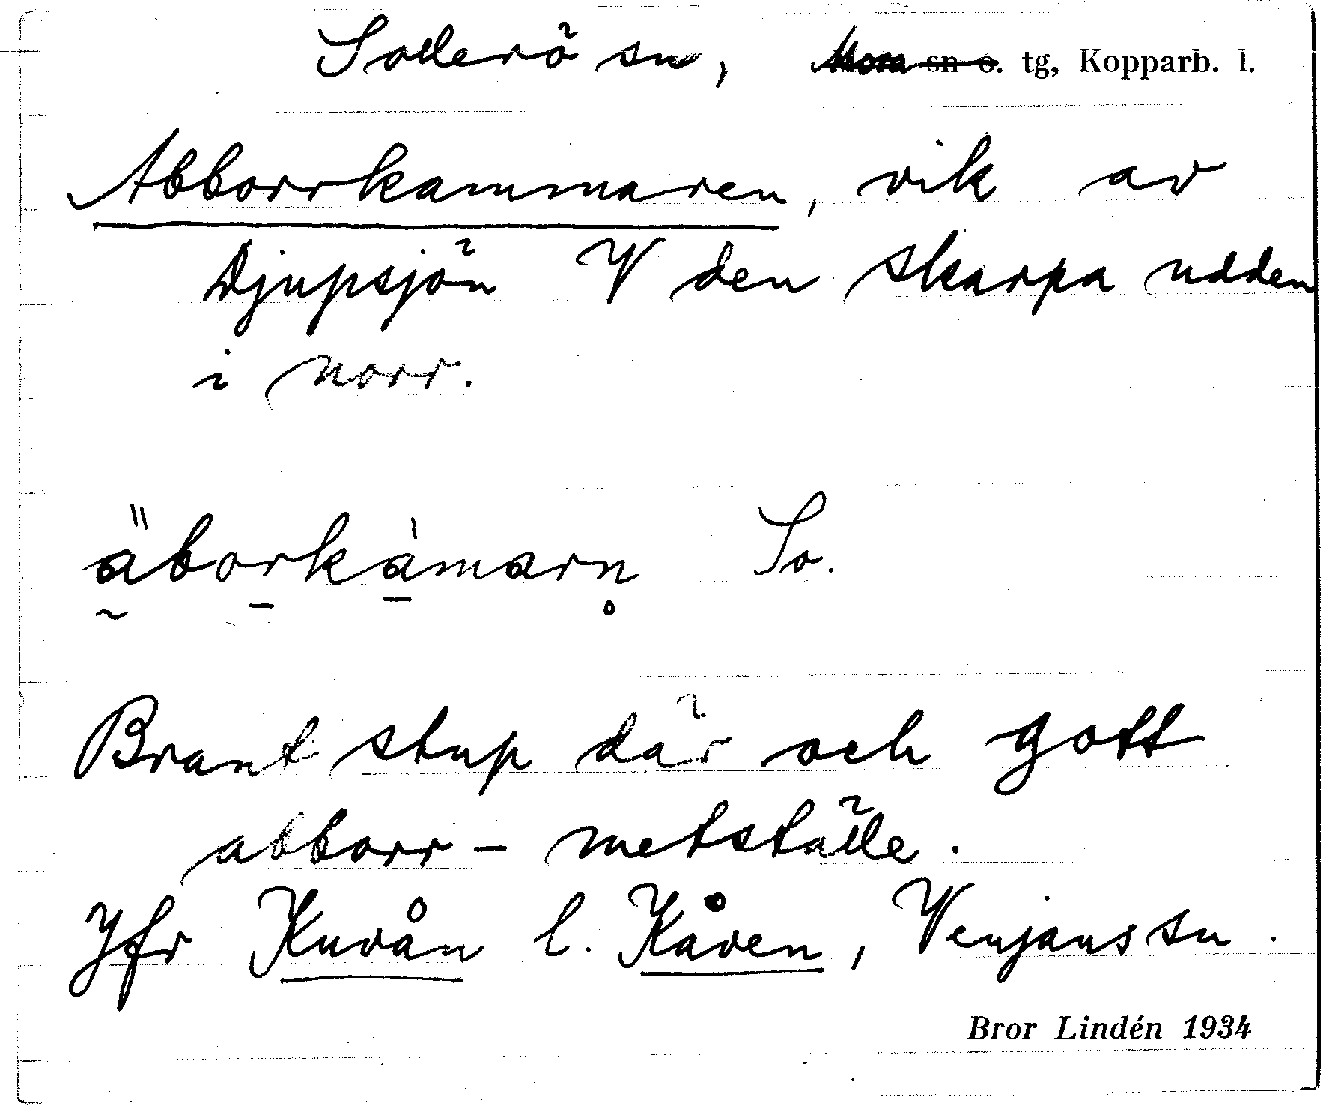 Sollerö sn, Mora sn o. tg, Kopparb. l.
Abborrkammaren, vik av
Djupsjön V den skarpa udden
i norr.
äborkàmarn So.
Brant stup där och gott
abborr-metställe.
Jfr Kuvån l. Kåven, Venjans sn.
Bror Lindén 1934